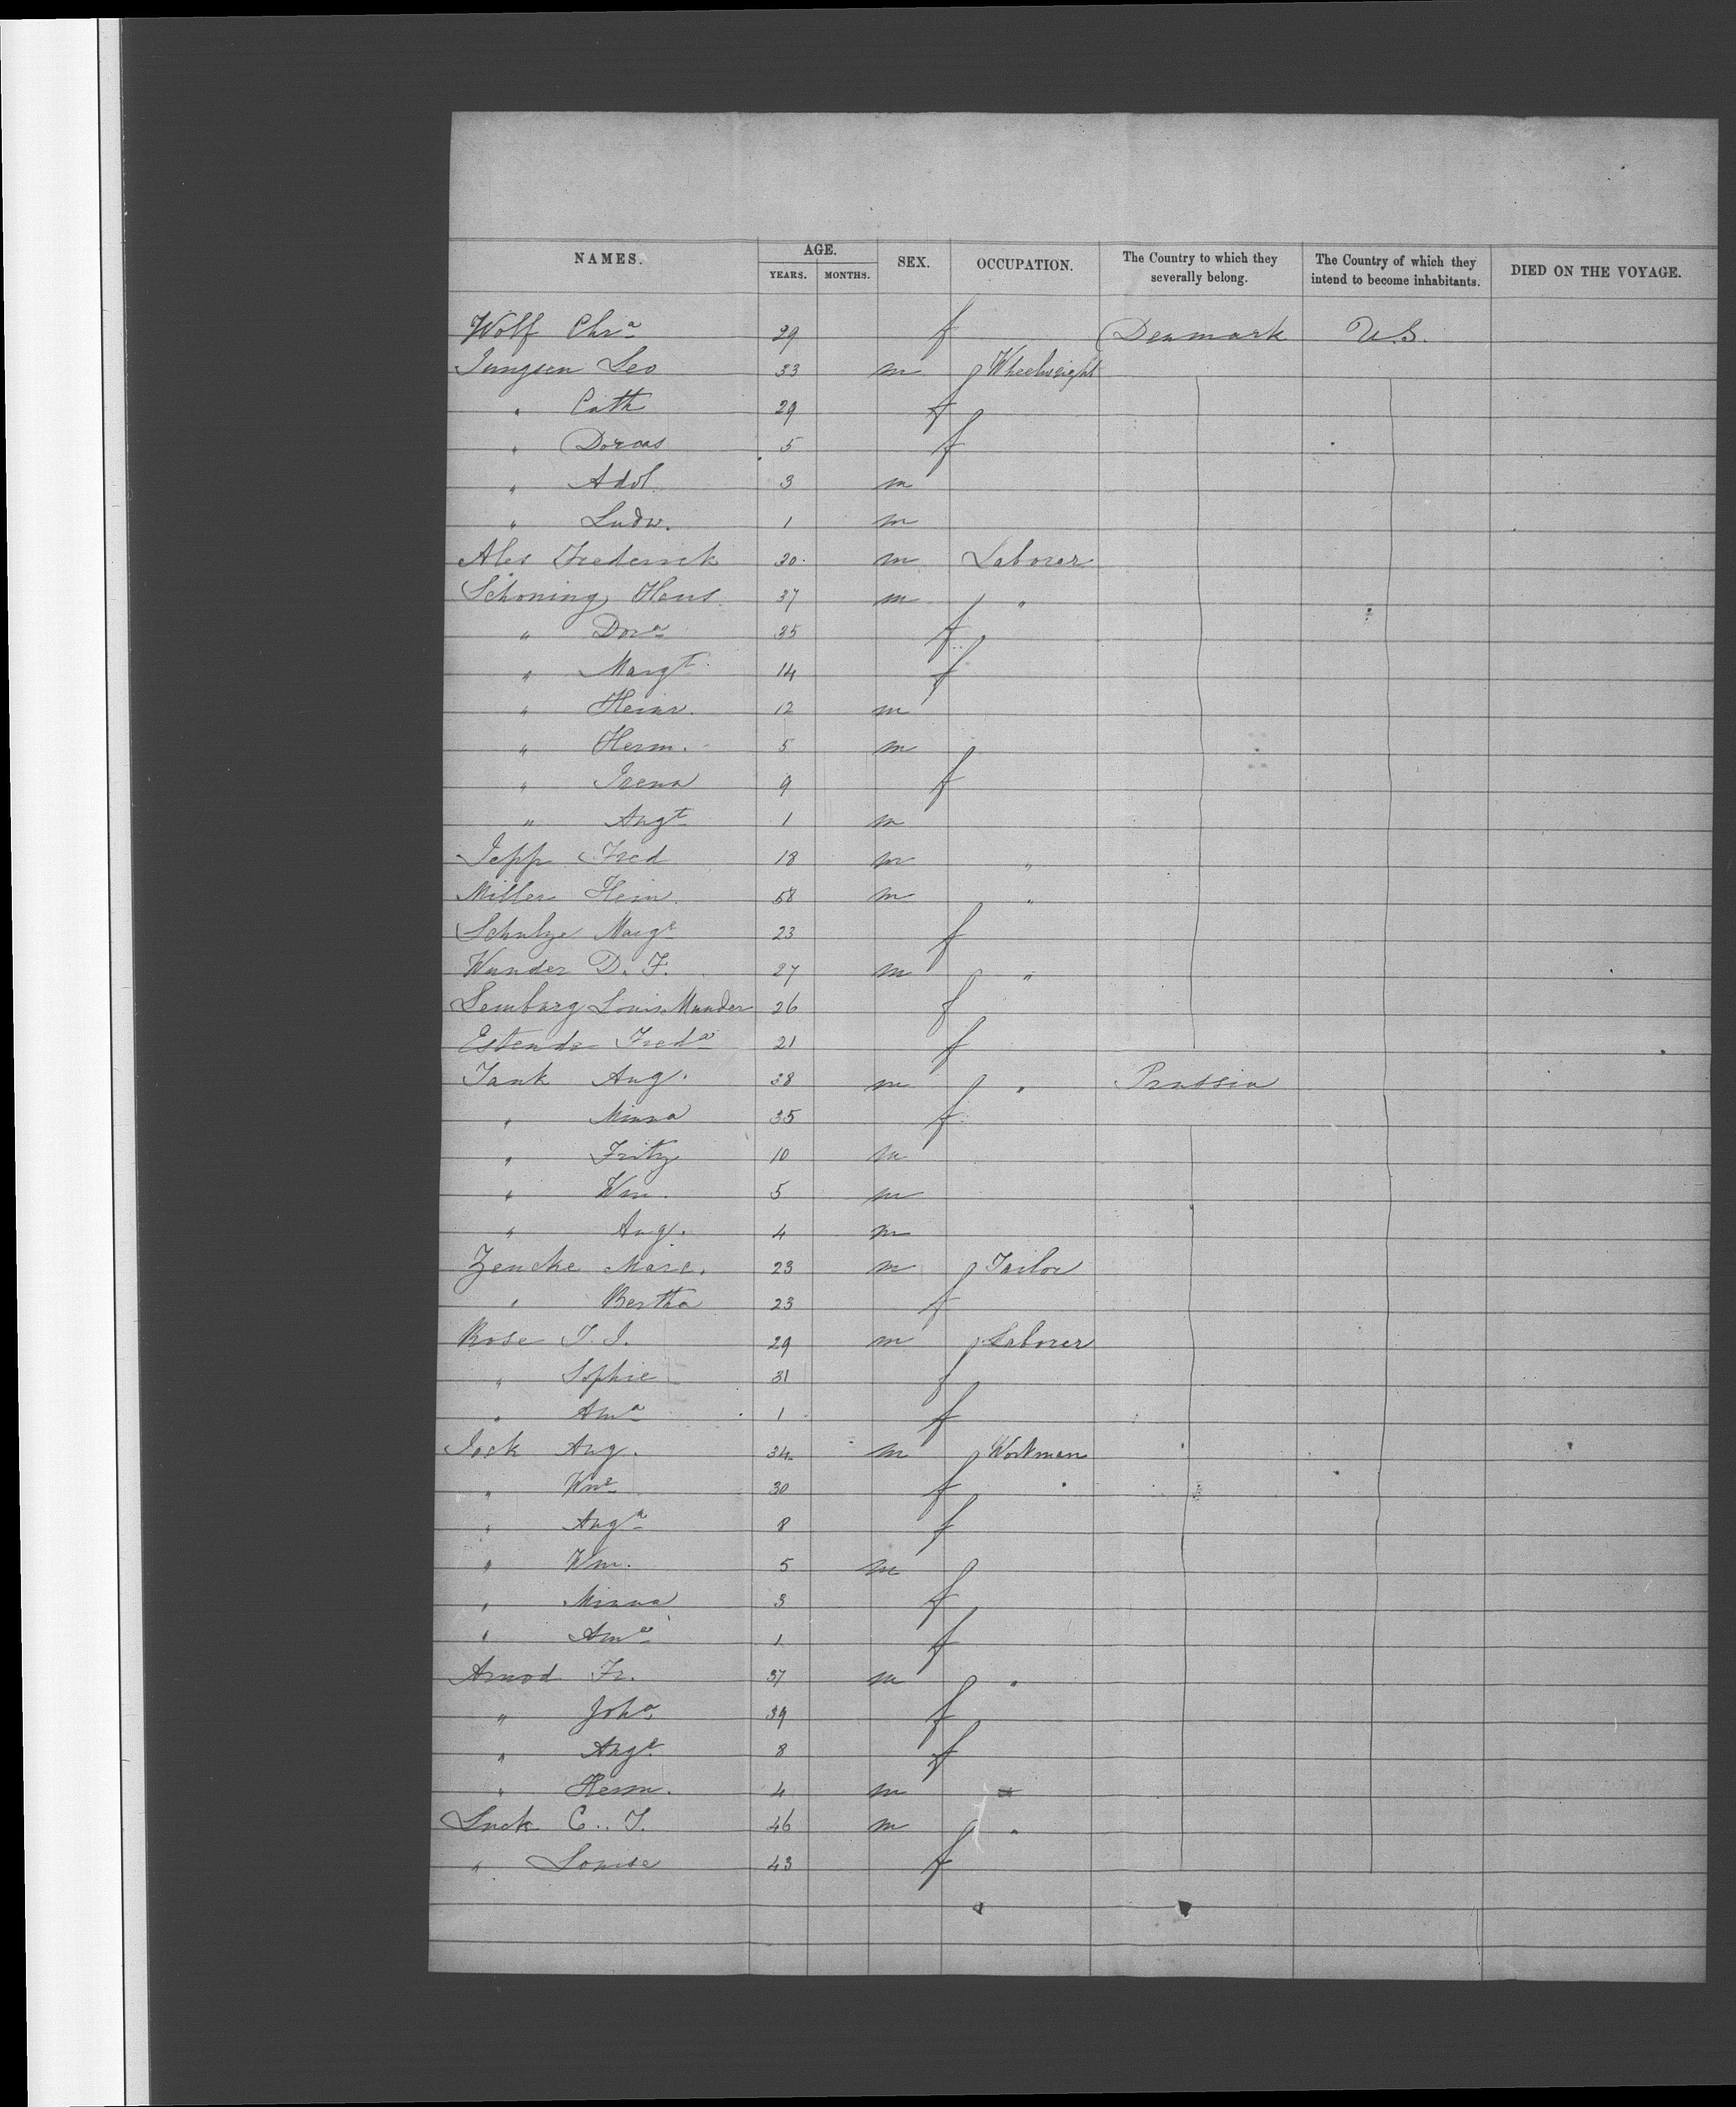 NAMES. AGE. YEARS. MONTHS. SEX. OCCUPATION. The Country to which they severally belong. The Country of which they intend to become inhabitants. DIED ON THE VOYAGE.
Wolf Chrª 29 f Denmark U.S.
Jungsen Leo 33 m Wheelwright
" Cath 29 f
" Dorcas 5 f
" Adol 3 m
" Ludw. 1 m
Ales Frederick 30 m Laborer
Schoning Hans 37 m "
" Dorª 35 f
" Margt 14 f
" Heinr. 12 m
" Herm. 5 m
" Irena 9 f
" Augt 1 m
Jepp Fred 18 m "
Miller Hein. 58 m "
Schulze Marge 23 f
Wander D. F. 27 m "
Lemburg Louis Mander 26 f
Estende Fredª 21 f
Tank Aug. 38 m " Prussia
" Minna 35 f
" Fritz 10 m
" Wm. 5 m
" Aug. 4 m
Zencke Marc. 23 m Tailor
" Bertha 23 f
Rose T. J. 29 m Laborer
" Sophie 31 f
" Amª 1 f
Jock Aug. 34 m Workman
" Wme 30 f
" Augª 8 f
" Wm. 5 m
" Minna 3 f
" Amª 1 f
Arnod Fr. 37 m "
" Johª 39 f
" Auge 8 f
" Herm. 4 m
Luck C. T. 46 m "
" Louise 43 f